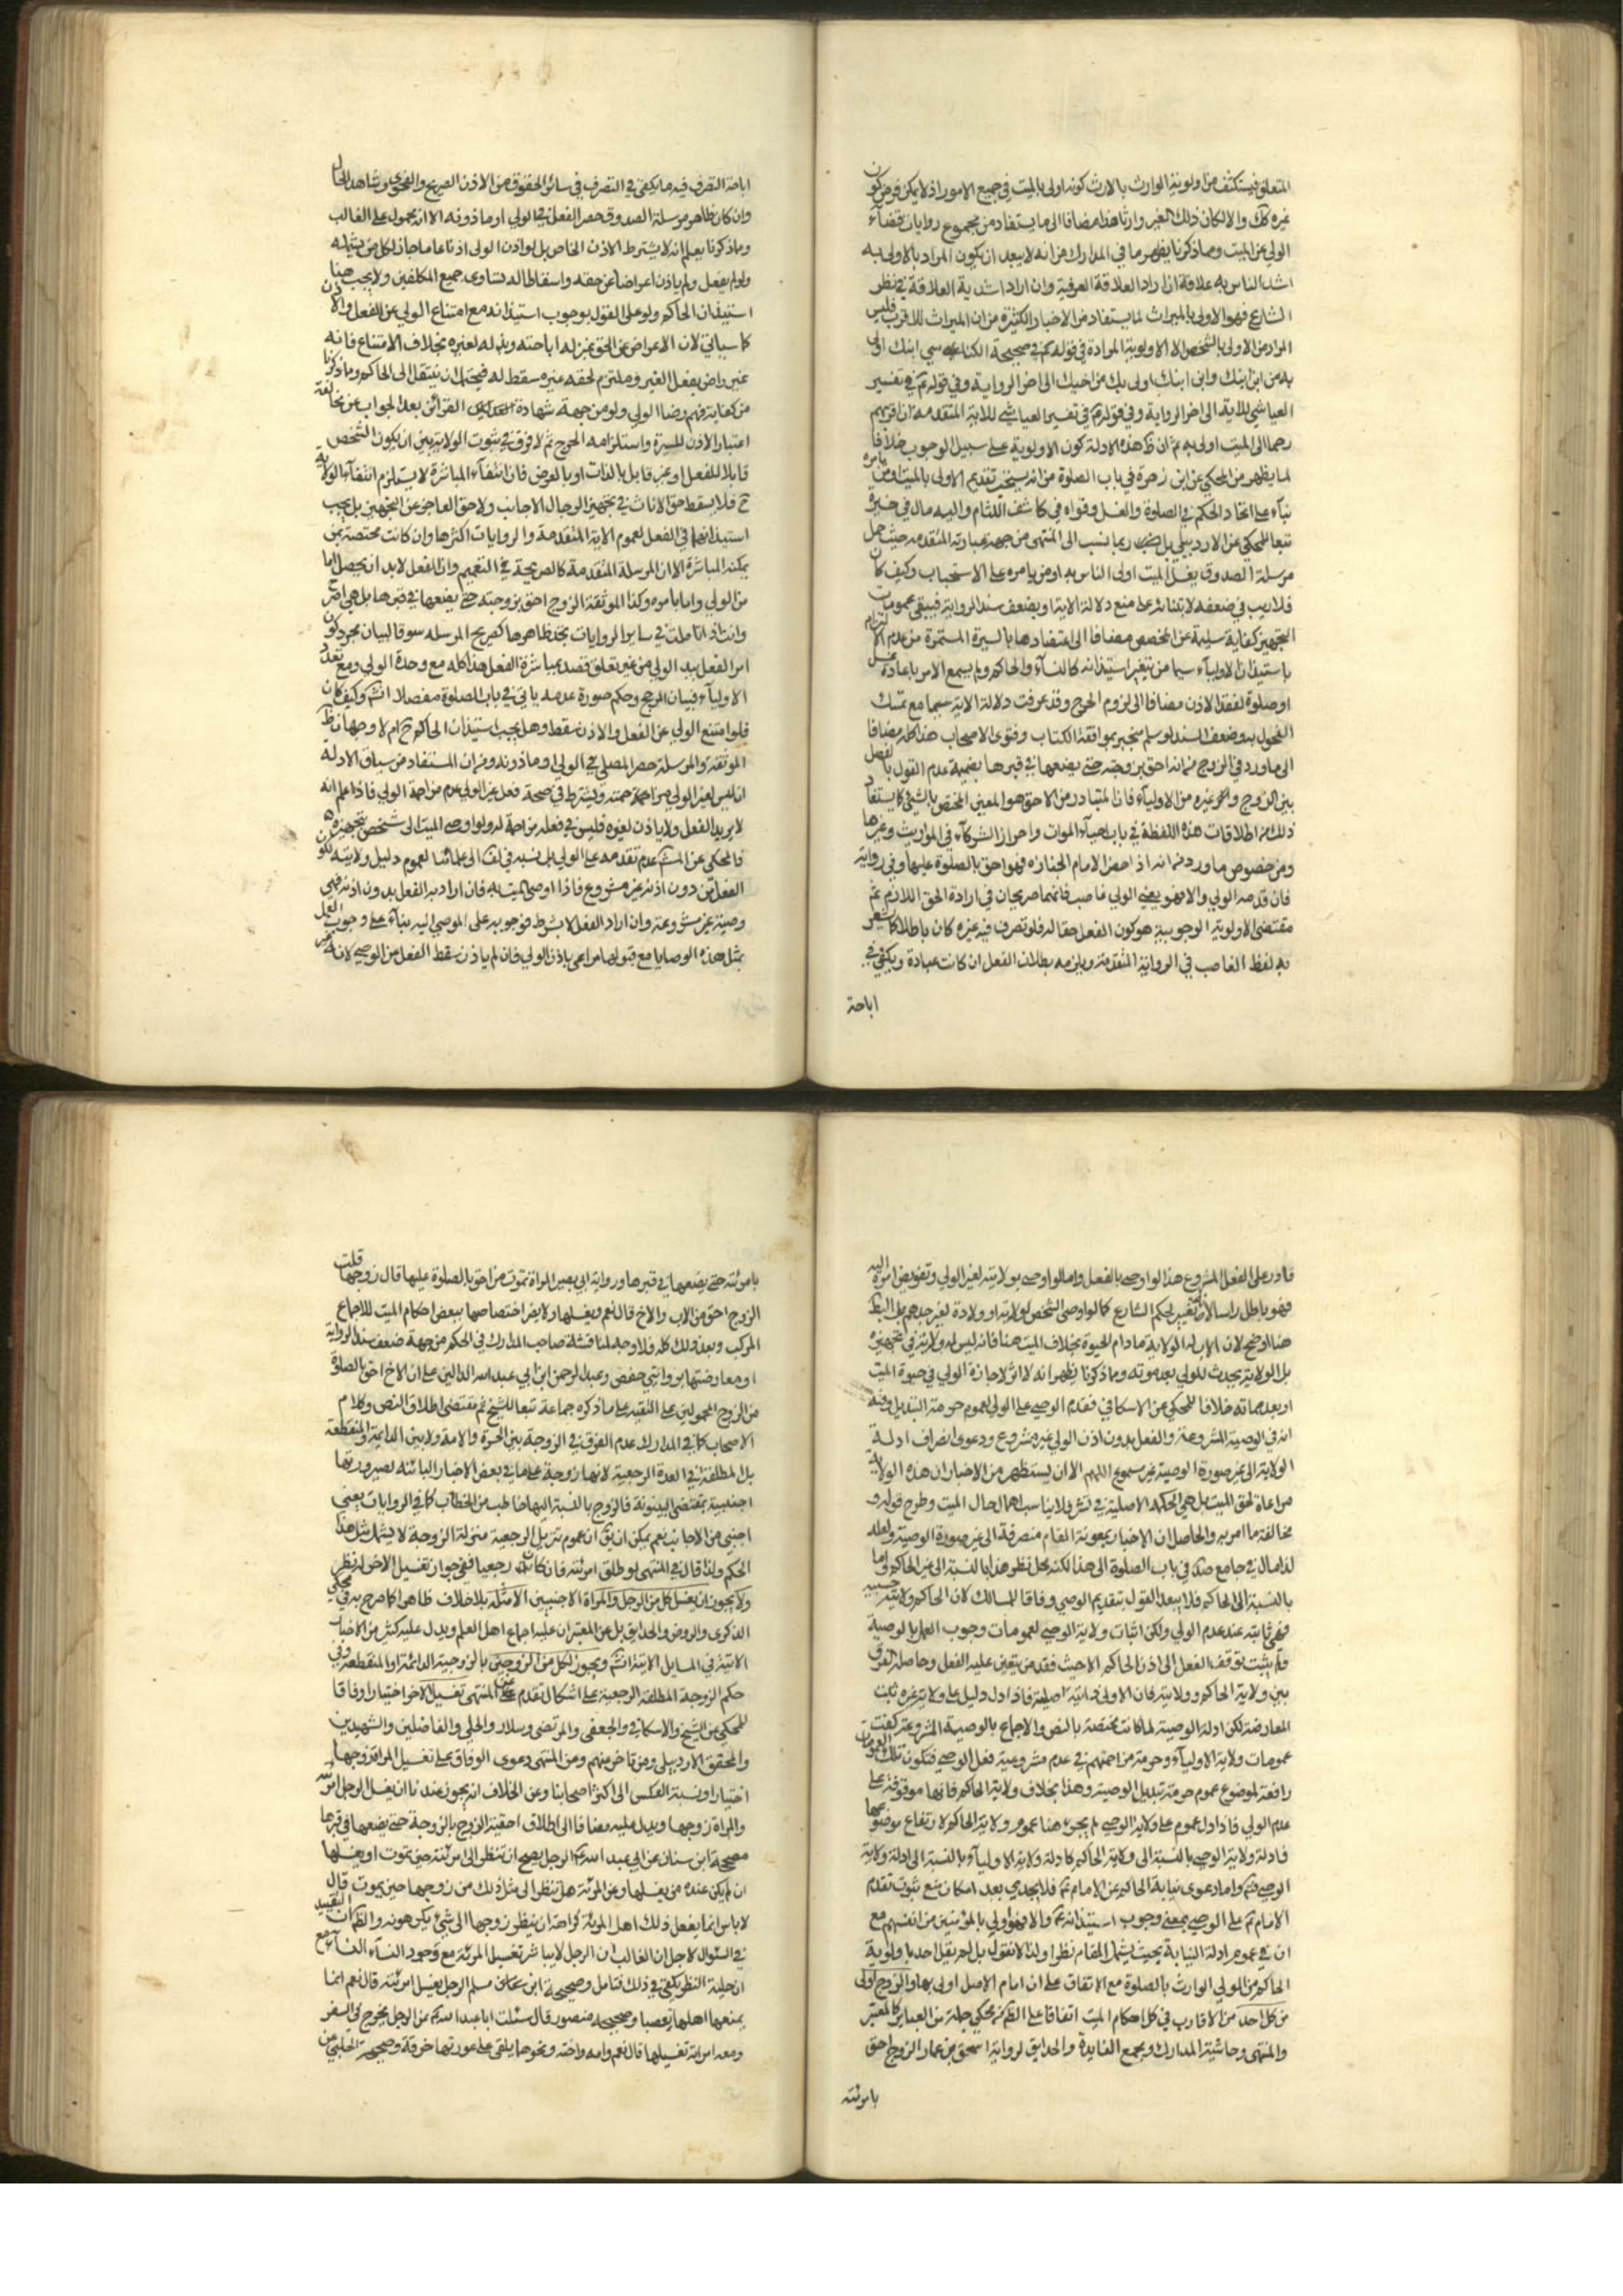 المتعلق فيستكشف من اولوية الوارث بالارث كونه اولى بالميت في جميع الامور اذ لا يمكن فرض كون
غيره كك والا لكان ذلك الغير وارثا هذا مضافا الى ما يستفاد من مجموع روايات قضاء
الولي عن الميت ومما ذكرنا يظهر ما في المدارك من انه لا يبعد ان يكون المراد بالاولى به
اشد الناس به علاقة اذ ان اراد العلاقة العرفية وان اراد اشدية العلاقة في نظر
الشارع فهو الاولى بالميراث لما يستفاد من الاخبار الكثيرة من ان الميراث للاقرب فليس
المراد من الاولى بالشخص الا الاولوية المرادة في قوله في صحيحة الكناسي ابنك اولى
بك من ابن ابنك وابن ابنك اولى بك من اخيك الى اخر الرواية وفي قوله في تفسير
العياشي للاية الى اخر الرواية وفي قوله في تفسير العياشي للاية المتقدمة ان اقربهم
رحما الى الميت اولى به ثم ان هذه الادلة كون الاولوية على سبيل الوجوب خلافا
لما يظهر من المحكي عن ابن زهرة في باب الصلوة من انه يستحب تقديم الاولى بالميت او من يامره
بناء على اتحاد الحكم في الصلوة والغسل وقواه في كاشف اللثام واليه مال في
تبعا للمحكي عن الاردبيلي بل ربما نسب الى المنتهى من جهة عبارته المتقدمة حيث حمل
مرسلة الصدوق يغسل الميت اولى الناس به او من يامره على الاستحباب وكيف كان
فلا ريب في ضعفه لابتنائه على منع دلالة الاية او بضعف سند الرواية فيبقى عمومات
التجهيز كفاية سليمة عن المخصص مضافا الى اعتضادها بالسيرة المستمرة من عدم الالتزام
باستيذان الاولياء سيما من يتغير استيذانه كالنساء والحاكم ولم يسمع الامر باعادة غسل
او صلوة لفقد الاذن مضافا الى لزوم الحرج وقد عرفت دلالة الاية سيما مع تمسك
الفحول به وضعف السند لو سلم منجبر بموافقة الكتاب وفتوى الاصحاب هذا كله مضافا
الى ما ورد في الزوج من انه احق بزوجته حتى يضعها في قبرها بضميمة عدم القول بالفصل
بين الزوج وغيره من الاولياء فان المتبادر من الاحق هو المعين المختص بالشئ كما يستفاد
ذلك من اطلاقات هذه اللفظة في باب احياء الموات واحراز الشركاء في المواريث وغيرها
ومن خصوص ما ورد من انه اذا حضر الامام الجنازة فهو احق بالصلوة عليها وفي رواية
فان قدمه الولي والا فهو يعني الولي غاصب فانهما صريحان في ارادة الحق اللازم ثم
مقتضى الاولوية الوجوبية هو كون الفعل حقا له فلو تصرف فيه غيره كان باطلا كما يشعر
به لفظ الغاصب في الرواية المتقدمة ويلزمه بطلان الفعل ان كانت عبادة ويكفي في
اباحة
اباحة التصرف فيه ما يكفي في التصرف في سائر الحقوق من الاذن الصريح والفحوى وشاهد الحال
وان كان ظاهر مرسلة الصدوق حصر الفعل في الولي او ماذونه الا انه محمول على الغالب
ومما ذكرنا يعلم انه لا يشترط الاذن الخاص بل لو اذن الولي اذنا عاما جاز لكل من يشمله
ولو لم يفعل ولم ياذن اعراضا عن حقه واسقاطا له تساوى جميع المكلفين ولا يجب هنا
استيذان الحاكم ولو على القول بوجوب استيذانه مع امتناع الولي عن الفعل والاذن
كما سياتي لان الاعراض عن الحق بمنزلة اباحته وبذله لغيره بخلاف الامتناع فانه
غير راض بفعل الغير وملتزم لحقه غيره سقط له فيحتمل ان ينتقل الى الحاكم ومما ذكرنا
من كفاية فهم رضا الولي ولو من جهة شهادة القرائن بعد الجواب عن مخالفة
اعتبار الاذن للسيرة واستلزامه الحرج ثم لا فرق في ثبوت الولاية بين ان يكون الشخص
قابلا للفعل او غير قابل بالذات او بالعرض فان انتفاء المباشرة لا يستلزم انتفاء الولاية
ح فلا يسقط حق الاناث في تجهيز الرجال الاجانب ولا حق العاجز عن التجهيز بل يجب
استيذانهما في الفعل لعموم الاية المتقدمة والروايات اكثرها وان كانت مختصة بمن
يمكنه المباشرة الا ان المرسلة المتقدمة كالصريحة في التعميم وان الفعل لابد ان يحصل اما
من الولي واما بامره وكذا الموثقة الزوج احق بزوجته حتى يضعها في قبرها بل هي اصرح
وانت اذا تاملت في ساير الروايات تجد ظاهرها كصريح المرسلة سوقا لبيان مجرد كون
امر الفعل بيد الولي من غير تعلق قصد بمباشرة الفعل هذا كله مع وحدة الولي ومع تعدد
الاولياء فبيان المرجح وحكم صورة عدمه ياتي في باب الصلوة مفصلا انش وكيف كان
فلو امتنع الولي عن الفعل والاذن سقط وهل يجب استيذان الحاكم ح ام لا وجهان
الموثقة والمرسلة حصر المصلي في الولي او ماذونه ومن ان المستفاد من سياق الادلة
ان ليس لغير الولي مزاحمته ويشترط في صحة فعل غير الولي عدم مزاحمة الولي فاذا علم انه
لا يريد الفعل ولا ياذن لغيره فليس في فعله مزاحمة له ولو اوصى الميت الى شخص بتجهيزه
فالمحكي عن المش عدم تقدمه على الولي بل نسبه في لف الى علمائنا لعموم دليل ولايته لكون
الفعل من دون اذنه غير مشروع فاذا اوصى الميت به فان اراد به الفعل بدون اذنه فهي
وصية غير مشروعة وان اراد الفعل لا بشرط فوجوبه على الموصى اليه بناء على وجوب العمل
بمثل هذه الوصايا مع قبولها مراعى باذن الولي فان لم ياذن سقط الفعل من الوصي لانه غير
قادر على الفعل المشروع هذا لو اوصى بالفعل واما لو اوصى بولايته لغير الولي وتفويض امره اليه
فهو باطل راسا لانه تغيير لحكم الشارع كما لو اوصى الشخص لولايته او ولادة لغير
هنا اوضح لان الاب له الولاية ما دام الحيوة بخلاف الميت هنا فانه ليس له ولاية في تجهيزه
بل الولاية يحدث للولي بعد موته ومما ذكرنا يظهر انه لا اثر لاجازة الولي في حيوة الميت
او بعد مماته خلافا للمحكي عن الاسكافي فقدم الوصي على الولي لعموم حرمة التبديل وفيه
انه في الوصية المشروعة والفعل بدون اذن الولي غير مشروع ودعوى انصراف ادلة
الولاية الى غير صورة الوصية غير مسموع اللهم الا ان يستظهر من الاخبار ان هذه الولاية
مراعاة لحق الميت بل هي الحكمة الاصلية في فلا يناسب اهمال حال الميت وطرح قوله و
مخالفة ما امر به والحاصل ان الاخبار بمعونة المقام منصرفة الى غير صورة الوصية ولعله
لذا مال في جامع صد في باب الصلوة الى هذا لكنه محل نظر هذا بالنسبة الى غير الحاكم واما
بالنسبة الى الحاكم فلا يبعد القول بتقديم الوصي وفاقا للمسالك لان الحاكم ولايته
فهي ثابتة عند عدم الولي ولكن اثبات ولاية الوصي لعمومات وجوب العمل بالوصية
ولم يثبت توقف الفعل الى اذن الحاكم الا حيث فقد من يتعين عليه الفعل وحاصله الفرق
بين ولاية الحاكم وولايته فان الاولى اصلية فاذا دل دليل على ولاية غيره ثبت
المعارضة لكن ادلة الوصية لما كانت مختصة بالنص والاجماع بالوصية المشروعة كفت
عمومات ولاية الاولياء وحرمة مزاحمتهم في عدم مشروعية فعل الوصي فتكون تلك العمومات
رافعة لموضوع عموم حرمة تبديل الوصية وهذا بخلاف ولاية الحاكم فانها موقوفة على
عدم الولي فاذا دل عموم على ولاية الوصي لم يجئ هنا عموم ولاية الحاكم لارتفاع موضوعها
فادلة ولاية الوصي بالنسبة الى ولاية الحاكم كادلة ولاية الاولياء بالنسبة الى ادلة ولاية
الوصي واما دعوى نيابة الحاكم عن الامام فلا يجدي بعد امكان منع ثبوت تقدم
الامام على الوصي بمعنى وجوب استيذانه والا فهو اولى بالمؤمنين من انفسهم مع
ان في عموم ادلة النيابة بحيث يشمل المقام نظرا ولذا لا نقول بل لم يقل احد باولوية
الحاكم من الولي الوارث بالصلوة مع الاتفاق على ان امام الاصل اولى بها والزوج اولى
من كل احد من الاقارب في كل احكام الميت اتفاقا على الظ المحكي جملة من العباير كالمعتبر
والمنتهى وحاشية المدارك ومجمع الفايدة والحدايق لرواية اسحق بن عمار الزوج احق
بامرئته
بامرئته حتى يضعها في قبرها ورواية ابي بصير المراة تموت من احق بالصلوة عليها قال زوجها قلت
الزوج احق من الاب والاخ قال نعم ويغسلها ولا يضر اختصاصها ببعض احكام الميت للاجماع
المركب وبعد ذلك كله فلا وجه لمناقشة صاحب المدارك في الحكم من جهة ضعف سند الرواية
او معارضتها بروايتي حفص وعبد الرحمن ابن ابي عبد الله الدالين على ان الاخ احق بالصلوة
من الزوج المحمولين على التقية على ما ذكره جماعة تبعا للشيخ ثم مقتضى اطلاق النص وكلام
الاصحاب كما في المدارك عدم الفرق في الزوجة بين الحرة والامة ولا بين الدائمة والمنقطعة
بل المطلقة في العدة الرجعية لانها زوجة على ما في بعض الاخبار البائنة لصيرورتها
اجنبية بمقتضى البينونة فالزوج بالنسبة اليها خاطب من الخطاب كما في الروايات يعني
اجنبي من الاجانب نعم يمكن ان يق ان عموم تنزيل الرجعية منزلة الزوجة لا يشمل مثل هذا
الحكم ولذا قال في المنتهى لو طلق امرئته فان كان رجعيا ففي جواز تغسيل الاخر له نظر
ولا يجوز ان يغسل كل من الرجل والمراة الاجنبيين الا مثله بلا خلاف ظاهرا كما صرح به في محكي
الذكرى والروض والحدايق بل عن المعتبر ان عليه اجماع اهل العلم ويدل عليه كثير من الاخبار
الاتية في المسايل الاتية انش ويجوز لكل من الزوجين بالزوجية الدائمة او المنقطعة وفي
حكم الزوجة المطلقة الرجعية على اشكال تقدم عن المنتهى تغسيل الاخر اختيارا وفاقا
للمحكي عن الشيخ والاسكافي والجعفي والمرتضى وسلار والحلي والفاضلين والشهيدين
والمحقق الاردبيلي ومن تاخر منهم وعن المنتهى دعوى الوفاق على تغسيل المراة زوجها
اختيارا ونسبة العكس الى اكثر اصحابنا وعن الخلاف انه يجوز عندنا ان يغسل الرجل امرئته
والمراة زوجها ويدل عليه مضافا الى اطلاق احقية الزوج بالزوجة حتى يضعها في قبرها
صحيحة ابن سنان عن ابي عبد الله الرجل يصلح ان ينظر الى امرئته حتى تموت او يغسلها
ان لم يكن عنده من يغسلها وعن المرئة هل تنظر الى مثل ذلك من زوجها حين يموت قال
لا باس انما يفعل ذلك اهل المرئة كراهة ان ينظر زوجها الى شئ يكرهونه والظ ان التقييد
في السؤال لاجل ان الغالب ان الرجل لا يباشر تغسيل المرئة مع وجود النساء مع
ان حلية النظر يكفي في ذلك فتامل وصحيحة ابن مسلم الرجل يغسل امرئته قال نعم انما
يمنعها اهلها تعصبا وصحيحة منصور قال سئلت ابا عبد الله عن الرجل يخرج في السفر
ومعه امرئته تغسيلها قال نعم وامه واخته ونحوها يلقى على عورتها خرقة وصحيحة الحلبي عن